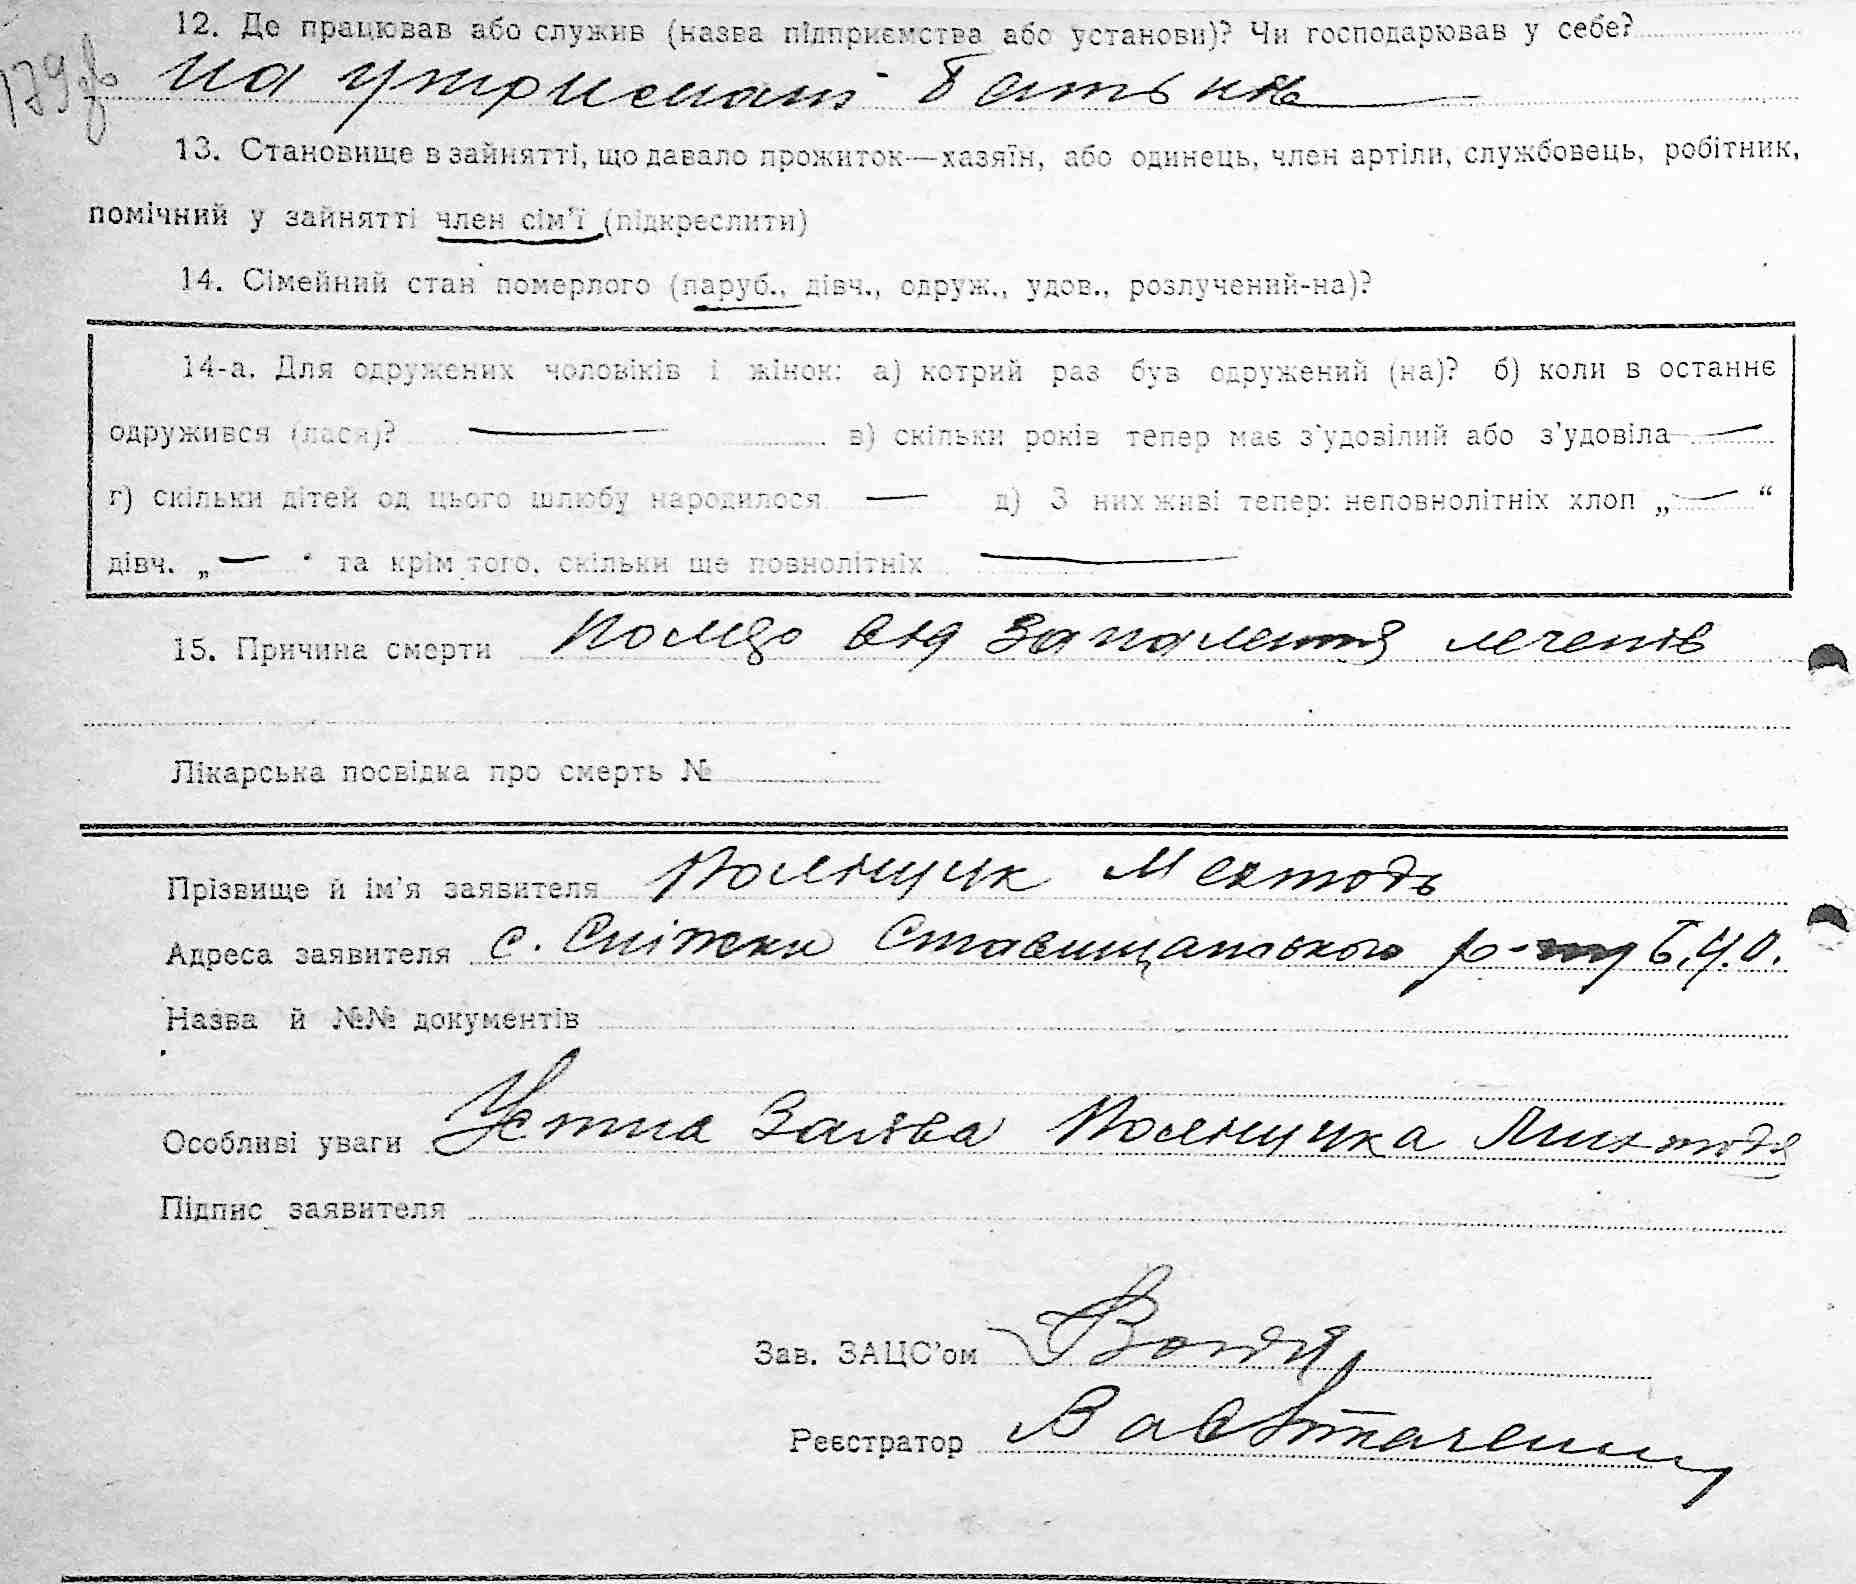 179 зв
12. Де працював або служив (назва підприємства або установи)? Чи господарював у себе?
на утримані батьків
13. Становище в зайнятті, що давало прожиток—хазяїн, або одинець, член артіли, службовець, робітник,
помічний у зайнятті член сім'ї (підкреслити)
14. Сімейний стан померлого (паруб., дівч., одруж., удов., розлучений-на)?
14-а. Для одружених чоловіків і жінок: а) котрий раз був одружений (на)? б) коли в останнє
одружився (лася)? — в) скільки років тепер має з'удовілий або з'удовіла —
г) скільки дітей од цього шлюбу народилося — д) З них живі тепер: неповнолітніх хлоп „—“
дівч. „—“ та крім того, скільки ще повнолітніх —
15. Причина смерти від запалення легенів
Лікарська посвідка про смерть №
Прізвище й ім'я заявителя Поліщук
Адреса заявителя с. Сніжки Ставищанського р-ну Б.Ц.О.
Назва й №№ документів
Особливі уваги Устна заява Поліщука
Підпис заявителя
Зав. ЗАЦС'ом
Реєстратор